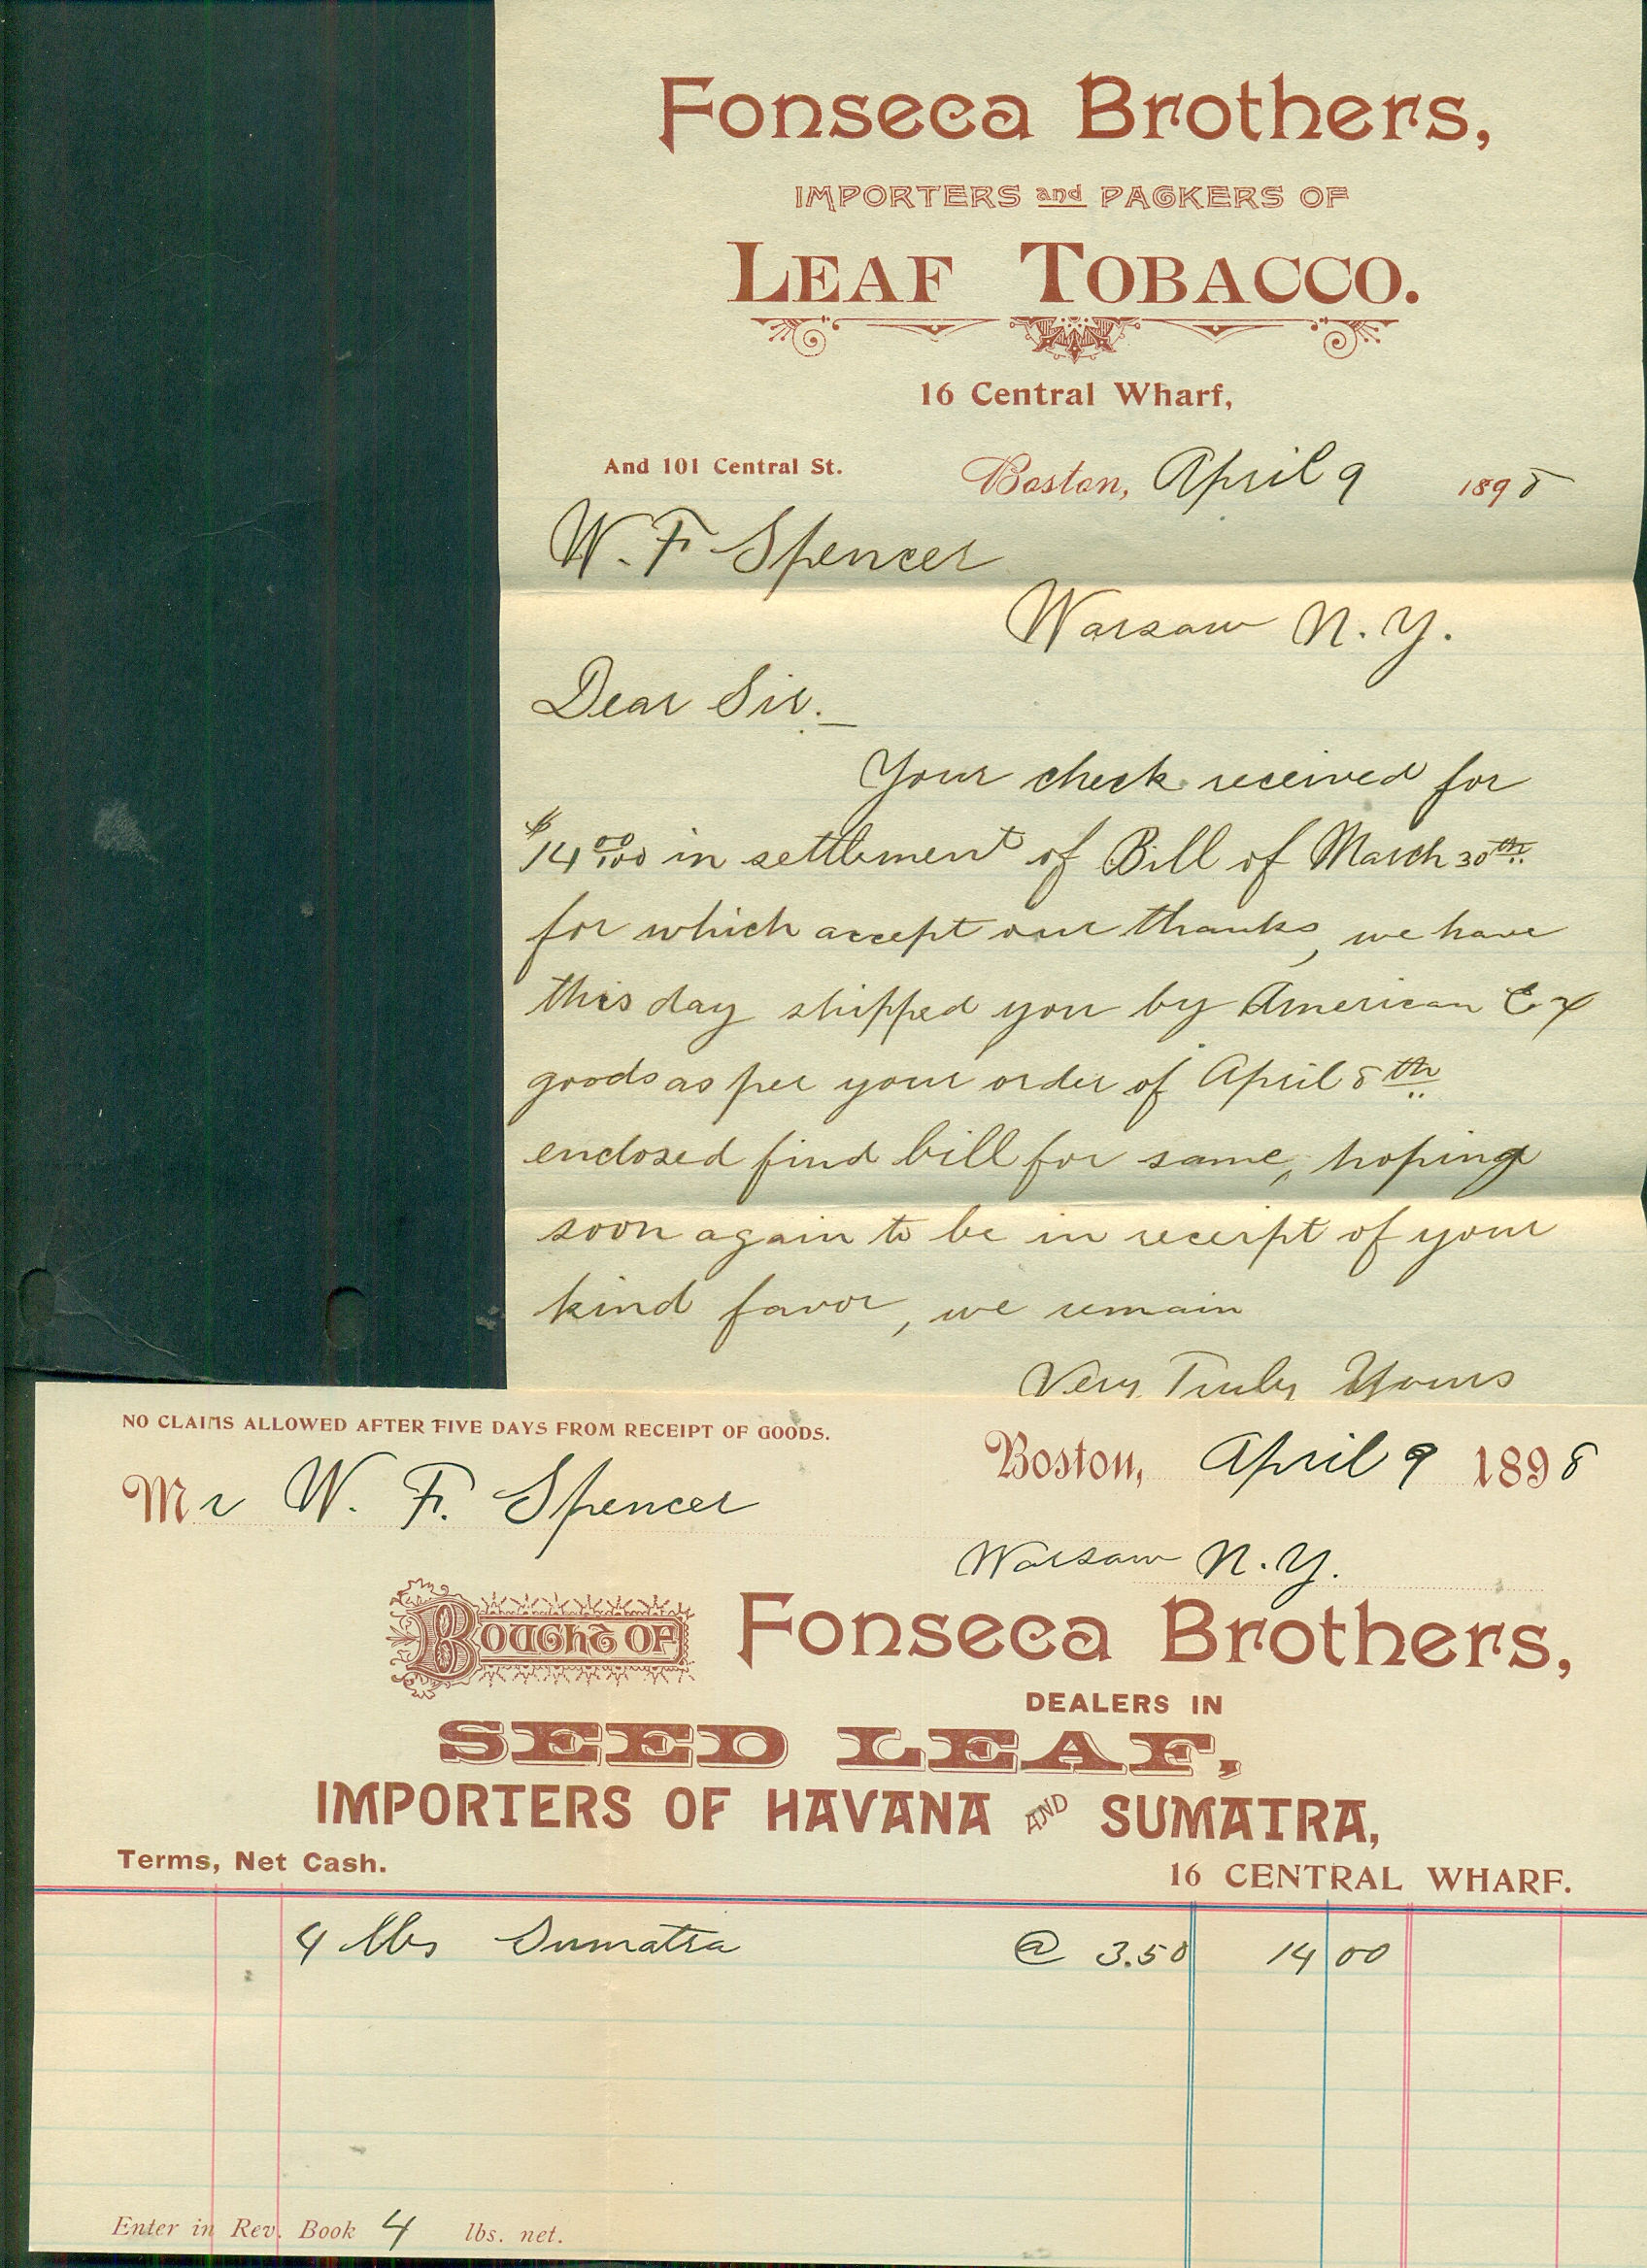 Fonseca Brothers,
IMPORTERS and PACKERS OF
LEAF TOBACCO.
16 Central Wharf,
And 101 Central St.
Boston, April 9 1898
W. F Spencer
Warsaw N. Y.
Dear Sir._
Your check received for
$14 00/100 in settlement of Bill of March 30th
for which accept our thanks, we have
this day shipped you by American Ex
goods as per your order of April 8th
enclosed find bill for same, hoping
soon again to be in receipt of your
kind favor, we remain
Very Truly Yours
NO CLAIMS ALLOWED AFTER FIVE DAYS FROM RECEIPT OF GOODS.
Boston, April 9 1898
Mr W. F. Spencer
Warsaw N. Y.
BOUGHT OF Fonseca Brothers,
DEALERS IN
SEED LEAF,
IMPORTERS OF HAVANA AND SUMATRA,
Terms, Net Cash.
16 CENTRAL WHARF.
4 lbs Sumatra @ 3.50 14 00
Enter in Rev. Book 4 lbs. net.